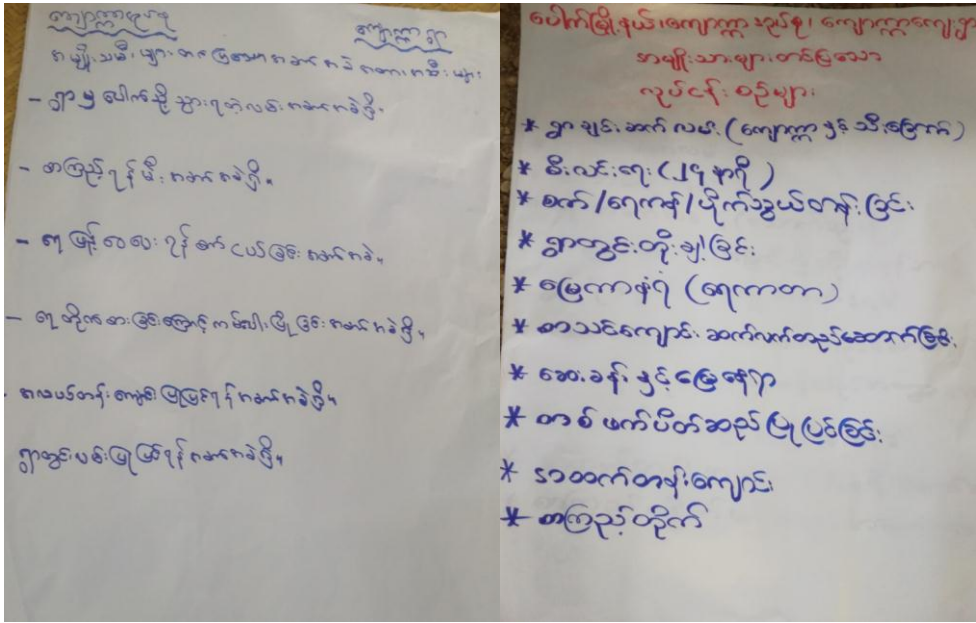 ကျောက္ကာအုပ်စု
ကျောက္ကာရွာ
အမျိုးသမီးများ တင်ပြသော အခက်အခဲ
– ရွာမှ ပေါက်သို့ သွားရတဲ့လမ်းအခက်အခဲရှိ။
– စာကြည့်ရန် မီးအခက်အခဲရှိ။
– ရေဖြန့်ဝေပေးရန် စက်ငယ်ခြင်းအခက်အခဲ။
– ရေတိုက်စားခြင်းကြောင့် ကမ်းပါးပြိုခြင်းအခက်အခဲရှိ။
အလယ်တန်းကျောင်းပြုပြင်ရန်အခက်အခဲရှိ။
ရွာတွင်းလမ်းပြုပြင်ရန်အခက်အခဲရှိ။
ပေါက်မြို့နယ်၊ ကျောက္ကာအုပ်စု၊ ကျောက္ကာကျေးရွာ
အမျိုးသားများတင်ပြသော
လုပ်ငန်းစဉ်များ
* ရွာချင်းဆက်လမ်း (ကျောက္ကာနှင့်သီးမြောက်)
* မီးလင်းရေး (၂၄ နာရီ)
* စက်/ရေကန်/ပိုက်သွယ်တန်းခြင်း
* ရွာတွင်းတိုးချဲ့ခြင်း
* မြေကာနံရံ (ရေကာတာ)
* စာသင်ကျောင်းဆက်လက်တည်ဆောက်ခြင်း
* ဆေးခန်းနှင့်မြေနေရာ
* တစ်ဖက်ပိတ်ဆည်ပြုပြင်ခြင်း
* အထက်တန်းကျောင်း
* စာကြည့်တိုက်